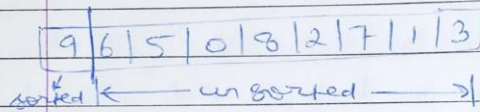 9 6 5 0 8 2 7 1 3
sorted unsorted